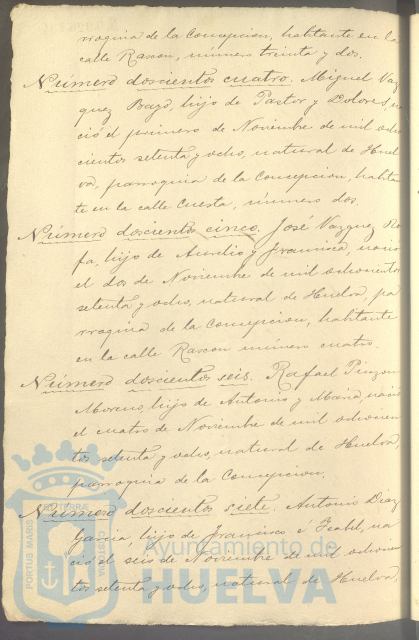 rroquia de la Concepcion, habitante en la
calle Rascon, número treinta y dos.
Número doscientos cuatro. Miguel Vaz
quez Bayo, hijo de Pastor y Dolores, na
ció el primero de Noviembre de mil ocho
cientos setenta y ocho, natural de Huel
va, parroquia de la Concepcion, habitan
te en la calle Cuesta, número dos.
Número doscientos cinco. José Vazquez Ro
fa, hijo de Aurelio y Francisca, nació
el dos de Noviembre de mil ochocientos
setenta y ocho, natural de Huelva, pa
rroquia de la Concepcion, habitante
en la calle Rascon número cuatro.
Número doscientos seis. Rafael Pinzon
Moreno, hijo de Antonio y Maria, nació
el cuatro de Noviembre de mil ochocien
tos setenta y ocho, natural de Huelva,
parroquia de la Concepcion.
Número doscientos siete. Antonio Diaz
Garcia, hijo de Francisco e Isabel, na
ció el seis de Noviembre de mil ochocien
tos setenta y ocho, natural de Huelva,
PORTUS MARIS ET TERRAE CUSTODIA
Ayuntamiento de
HUELVA